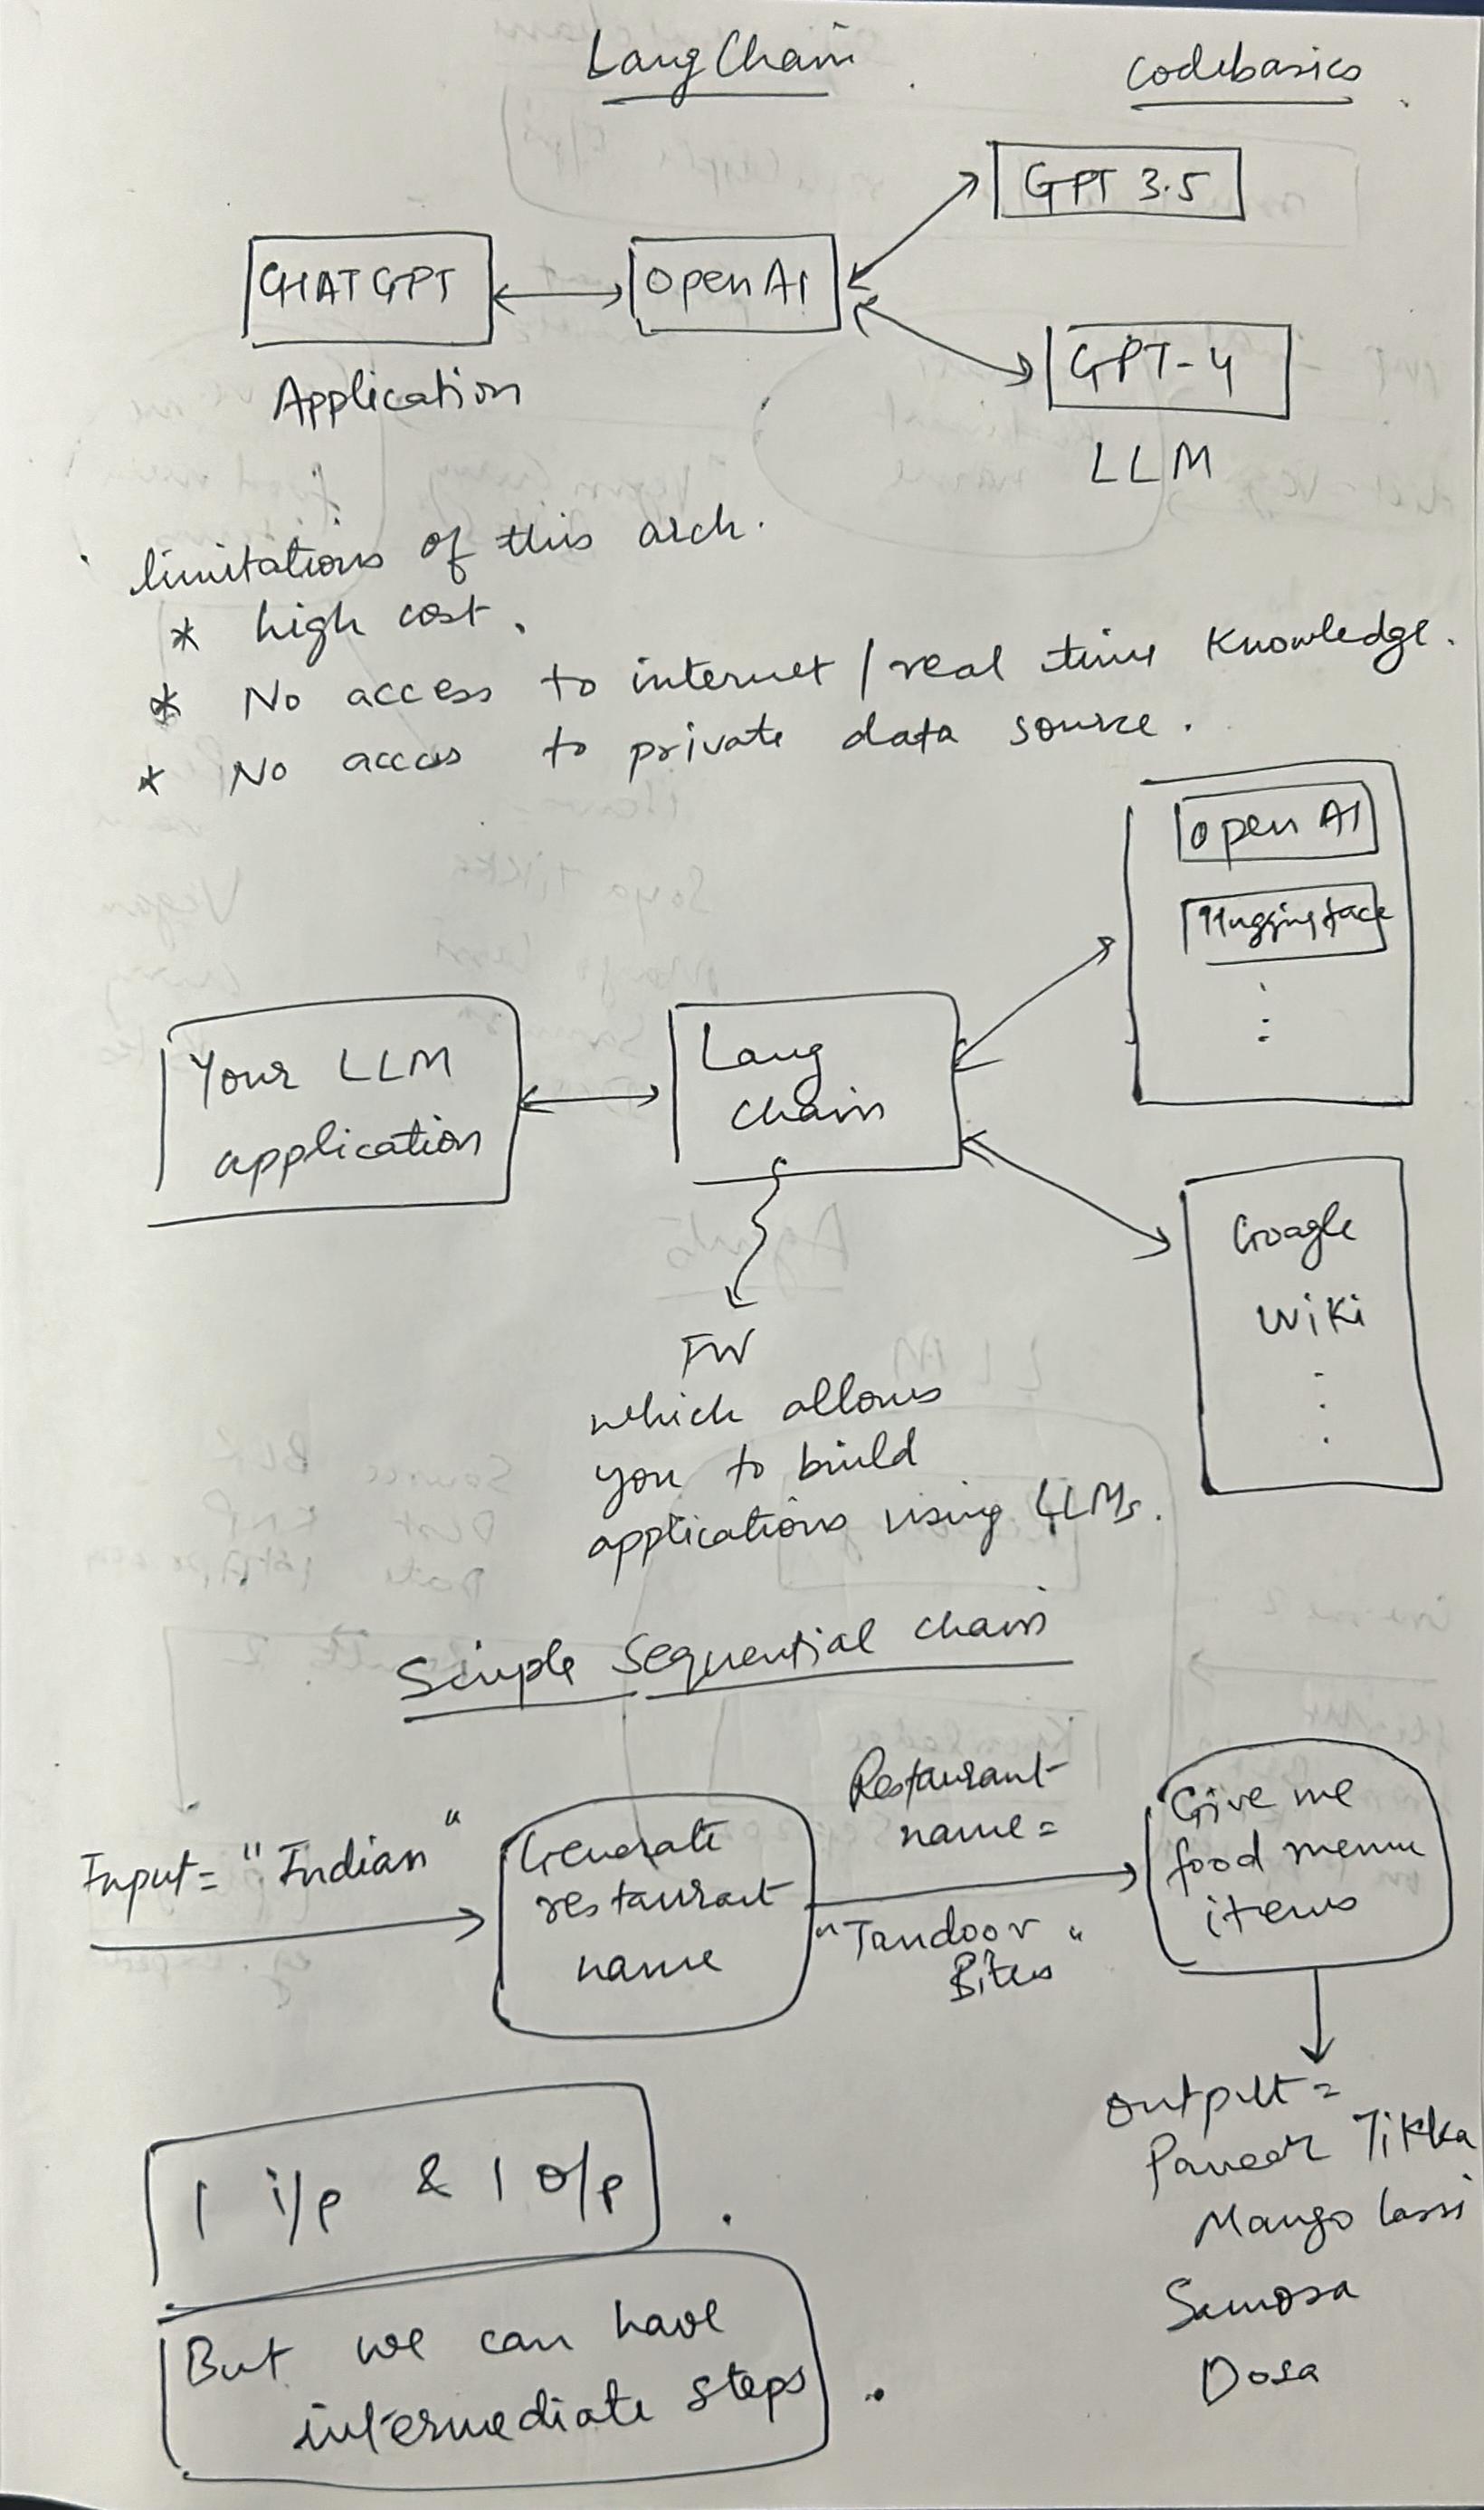 LangChain
codebasics
GPT 3.5
CHATGPT
OpenAI
GPT-4
Application
LLM
limitations of this arch.
* high cost.
* No access to internet / real time knowledge.
* No acces to private data source.
Open AI
Hugging face
Your LLM
application
Lang
chain
Google
Wiki
FW
which allows
you to build
applications using LLMs.
Simple Sequential chain
Input = "Indian"
Generate
restaurant
name
Restaurant
name =
"Tandoor
Bites"
Give me
food menu
items
output =
Paneer Tikka
Mango lassi
Samosa
Dosa
1 i/p & 1 o/p
But we can have
intermediate steps